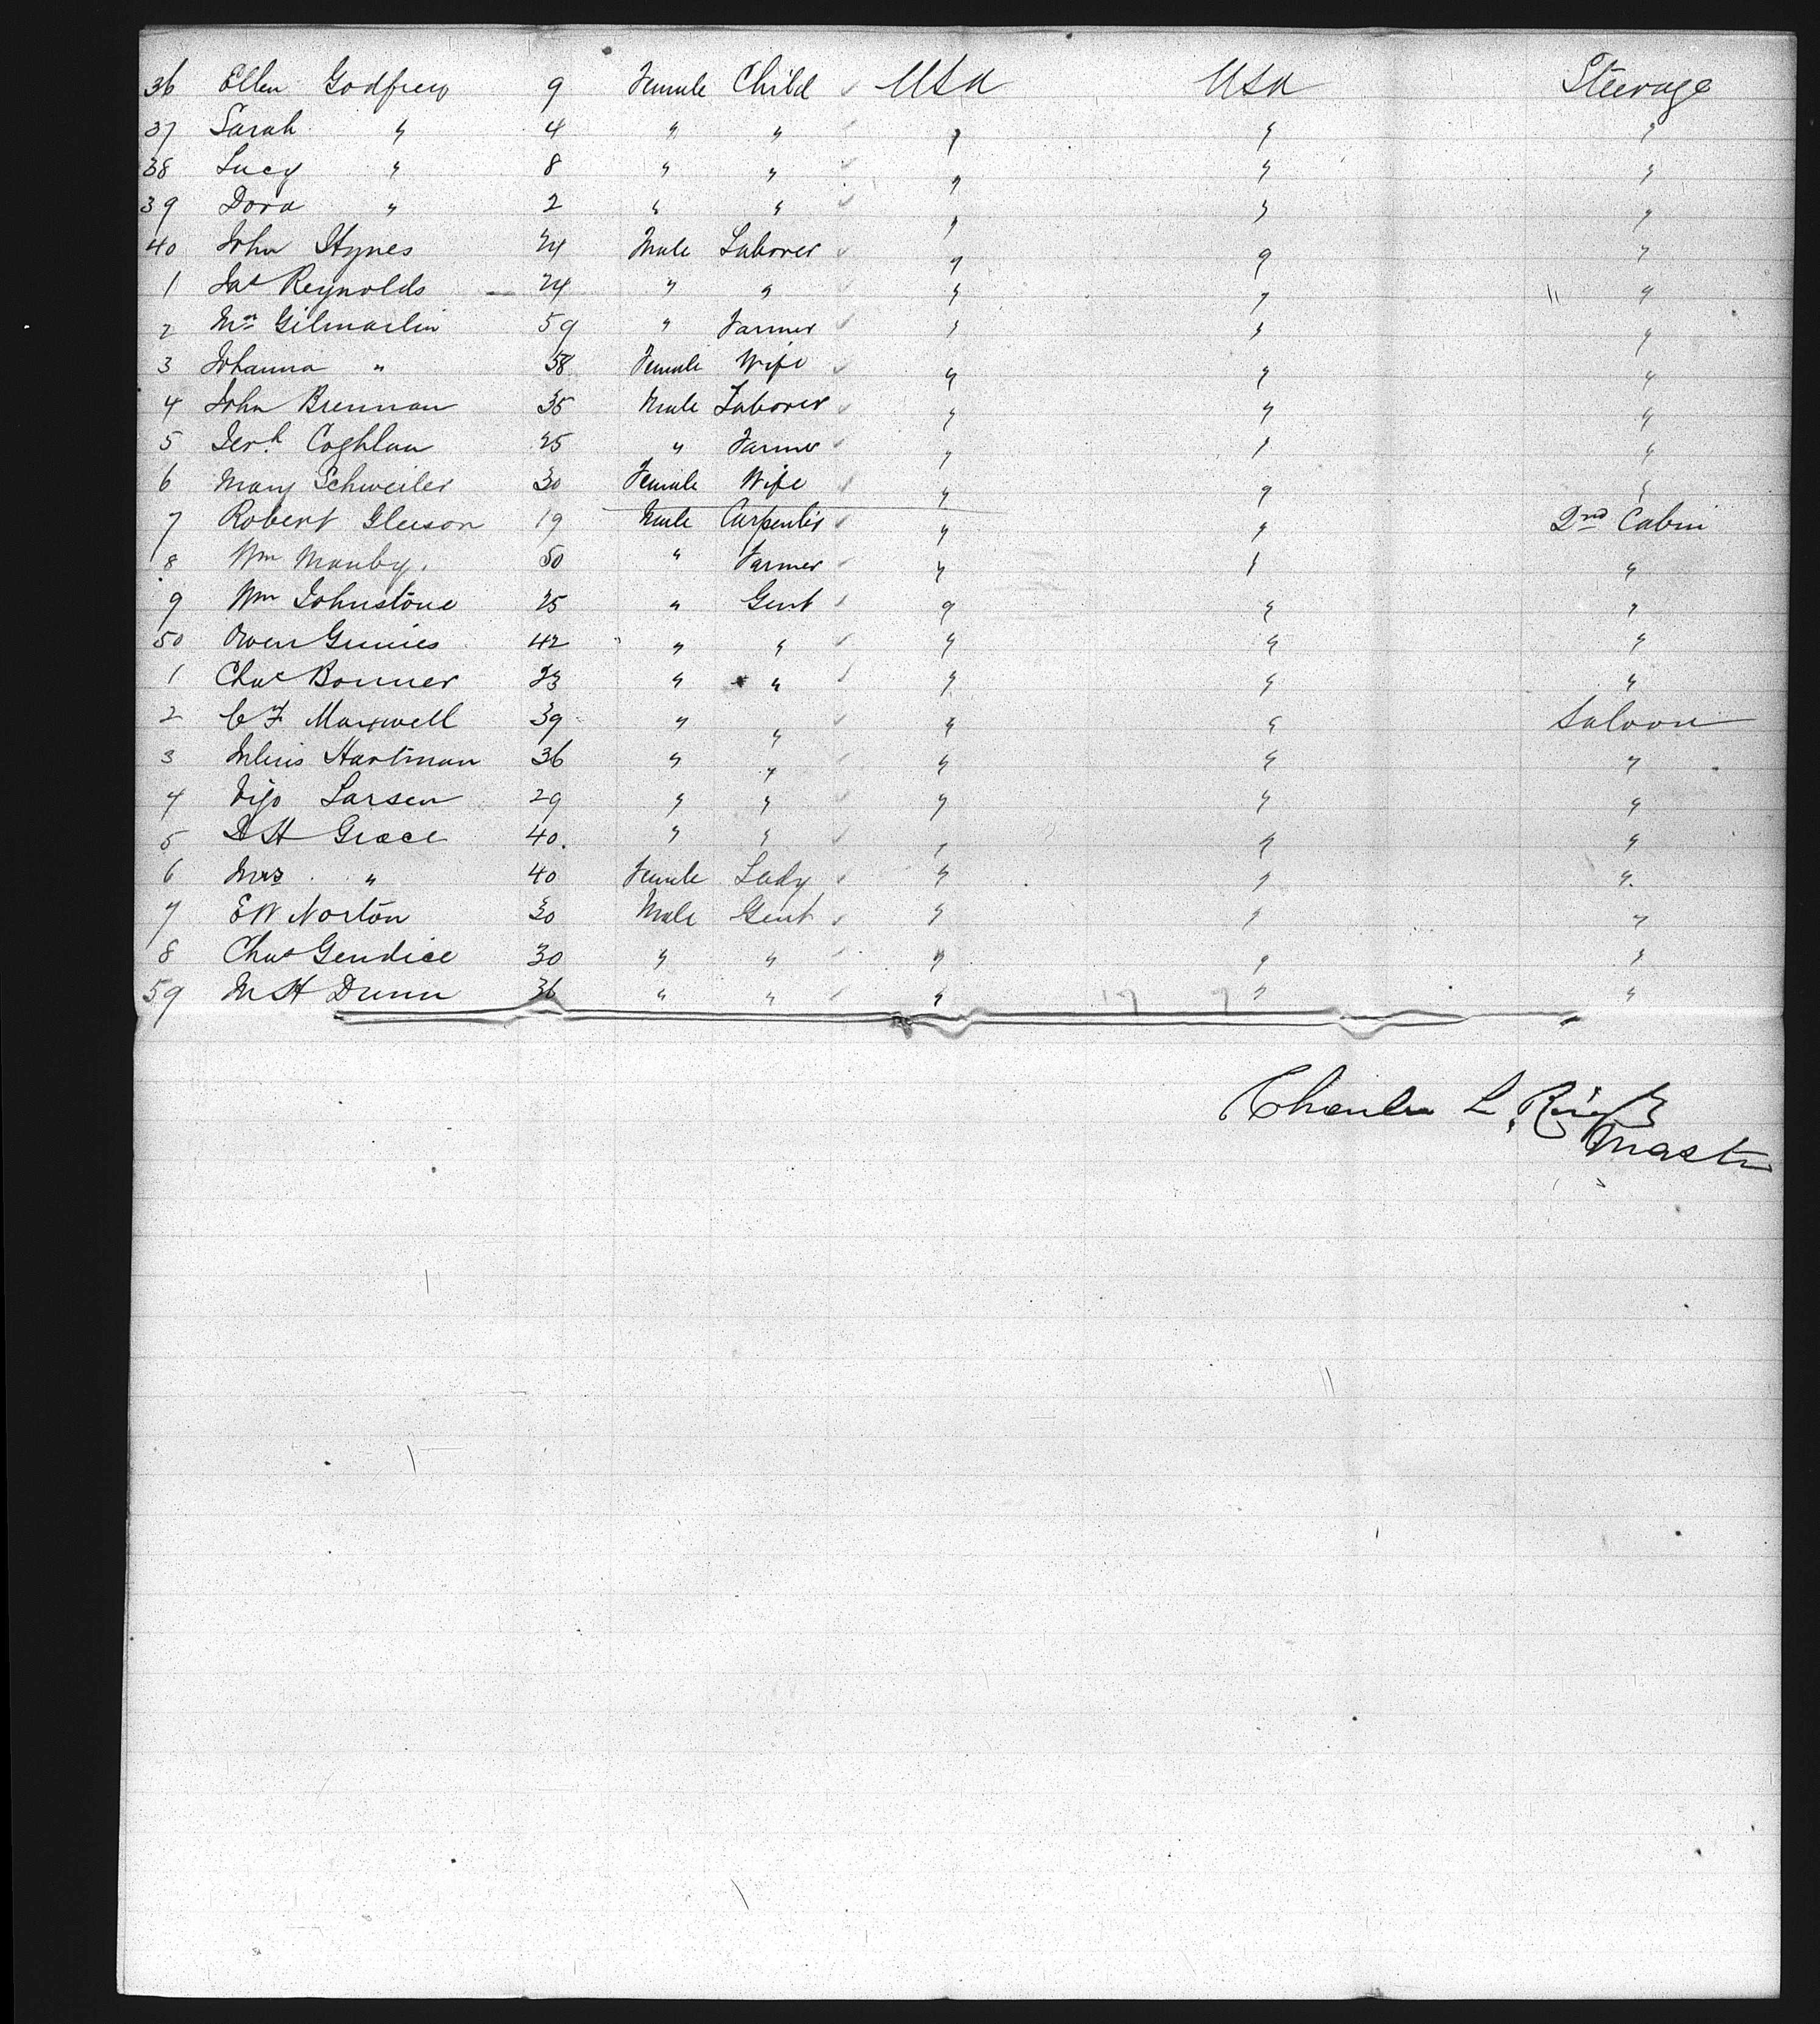 36 Ellen Godfrey 9 Female Child ✓ USA USA Steerage
37 Sarah " 4 " " ✓ " " "
38 Lucy " 8 " " ✓ " " "
39 Dora " 2 " " ✓ " " "
40 John Hynes 24 Male Laborer ✓ " " "
1 Jas Reynolds 24 " " " " "
2 Gilmartin 59 " Farmer ✓ " " "
3 Johanna " 58 Female Wife ✓ " " "
4 John Brennan 35 Male Laborer ✓ " " "
5 Jerh. Coghlan 25 " Farmer ✓ " " "
6 Mary Schweiler 30 Female Wife ✓ " " "
7 Robert Gleeson 19 Male Carpenter ✓ " " 2nd Cabin
8 Wm Manby. 50 " Farmer ✓ " " "
9 Wm Johnstone 25 " Gent ✓ " " "
50 Owen 42 " " ✓ " " "
1 Chas Bonner 23 " " ✓ " " "
2 C F Maxwell 39 " " ✓ " " Saloon
3 Julius Hartman 36 " " ✓ " " "
4 Vijo Larsen 29 " " ✓ " " "
5 H Grace 40. " " ✓ " " "
6 Mrs " 40 Female Lady ✓ " " "
7 E W Norton 30 Male Gent ✓ " " "
8 Chas Gendice 30 " " ✓ " " "
59 M H Dunn 36 " " ✓ " " "
Charles L.
Master